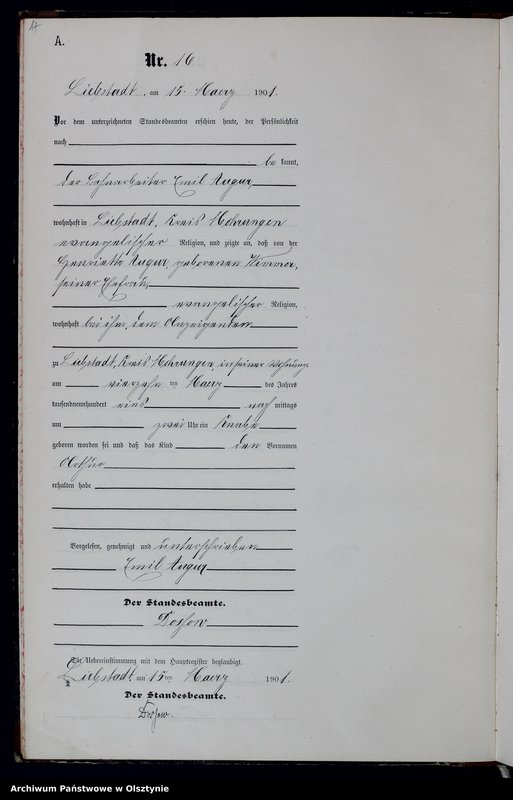 A.
Nr. 16
Liebstadt, am 15. Maerz 1901.
Vor dem unterzeichneten Standesbeamten erschien heute, der Persönlichkeit
nach
be kannt,
der Bahnarbeiter Emil August
wohnhaft in Liebstadt, Kreis Mohrungen
evangelischer Religion, und zeigte an, daß von der
Henriette August, geborenen
seiner Ehefrau,
evangelischer Religion,
wohnhaft bei ihm, dem Anzeigenden
zu Liebstadt, Kreis Mohrungen, in seiner Wohnung
am vierzehn ten Maerz des Jahres
tausendneunhundert eins nach mittags
um zwei Uhr ein Knabe
geboren worden sei und daß das Kind den Vornamen
Arthur
erhalten habe
Vorgelesen, genehmigt und unterschrieben
Emil August
Der Standesbeamte.
Die Uebereinstimmung mit dem Hauptregister beglaubigt.
Liebstadt, am 15 ten Maerz 1901.
Der Standesbeamte.
Archiwum Państwowe w Olsztynie